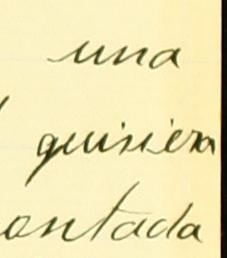 una
quisiera
ontada